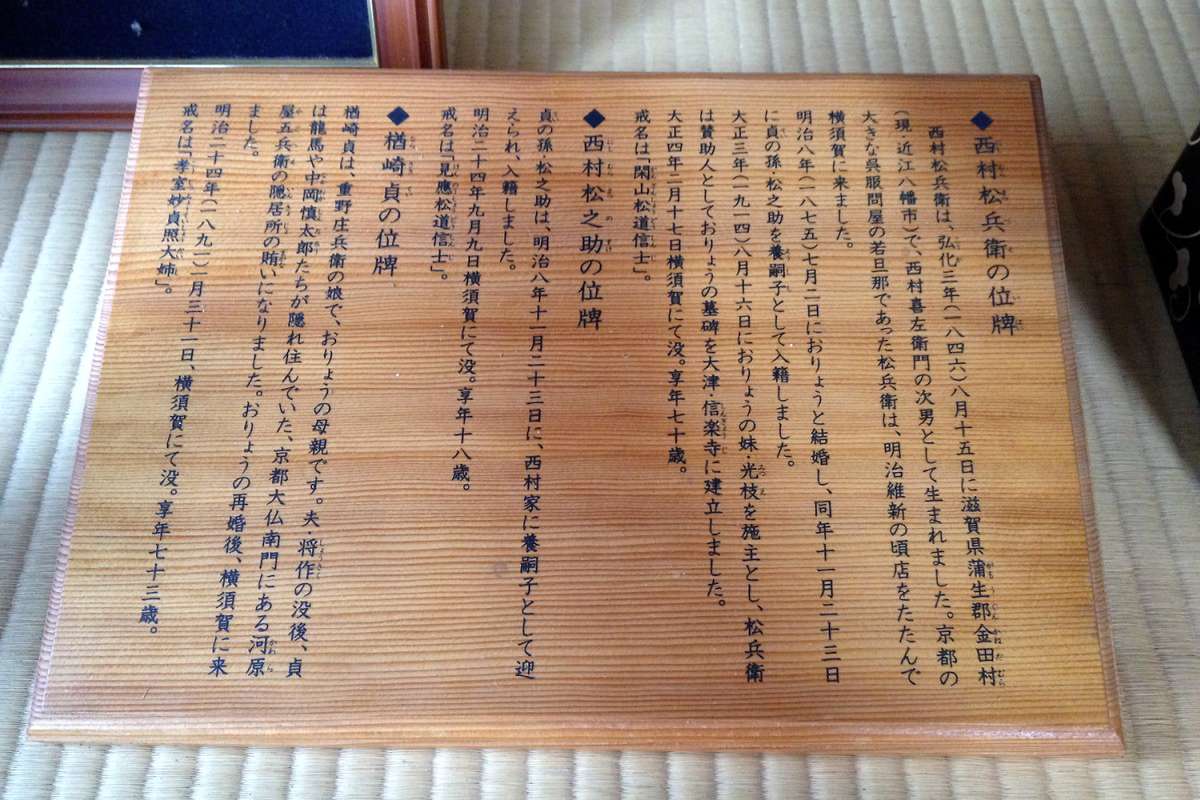 ◆西村松兵衛の位牌
西村松兵衛は、弘化三年(一八四六)八月十五日に滋賀県蒲生郡金田村
(現・近江八幡市)で、西村喜左衛門の次男として生まれました。京都の
大きな呉服問屋の若旦那であった松兵衛は、明治維新の頃店をたたんで
横須賀に来ました。
明治八年(一八七五)七月二日におりょうと結婚し、同年十一月二十三日
に貞の孫・松之助を養嗣子として入籍しました。
大正三年(一九一四)八月十六日におりょうの妹・光枝を施主とし、松兵衛
は賛助人としておりょうの墓碑を大津・信楽寺に建立しました。
大正四年二月十七日横須賀にて没。享年七十歳。
戒名は「閑山松道信士」。
◆西村松之助の位牌
貞の孫・松之助は、明治八年十一月二十三日に、西村家に養嗣子として迎
えられ、入籍しました。
明治二十四年九月九日横須賀にて没。享年十八歳。
戒名は「見應松道信士」。
◆楢崎貞の位牌
楢崎貞は、重野庄兵衛の娘で、おりょうの母親です。夫・将作の没後、貞
は龍馬や中岡慎太郎たちが隠れ住んでいた、京都大仏南門にある河原
屋五兵衛の隠居所の賄いになりました。おりょうの再婚後、横須賀に来
ました。
明治二十四年(一八九一)一月三十一日、横須賀にて没。享年七十三歳。
戒名は「孝室妙貞照大姉」。